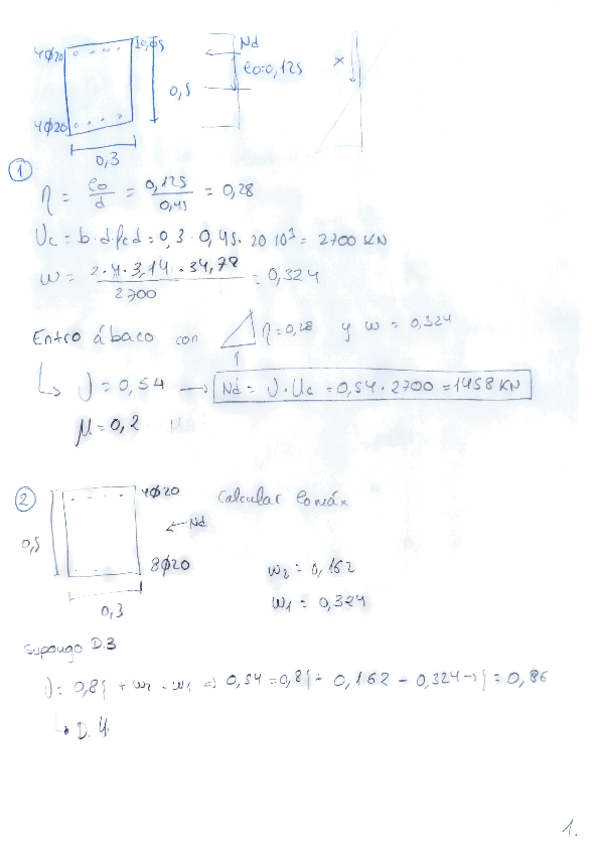 4Ø20
0,05
Nd
e0=0,125
x
0,5
4Ø20
0,3
①
η = e0/d = 0,125/0,45 = 0,28
Uc = b·d·fcd = 0,3 · 0,45 · 20 10³ = 2700 KN
w = 2·4·3,14·34,78/2700 = 0,324
Entro ábaco con η=0,28 y w = 0,324
1
↳ υ = 0,54 → Nd = υ·Uc = 0,54·2700 = 1458 KN
μ = 0,2
②
4Ø20
Calcular e0 máx
← Nd
0,5
8Ø20
w2 = 0,162
0,3
w1 = 0,324
Supongo D.3
υ = 0,8ξ + w2 - w1 ⇒ 0,54 = 0,8ξ + 0,162 - 0,324 → ξ = 0,86
↳ D.4
1.